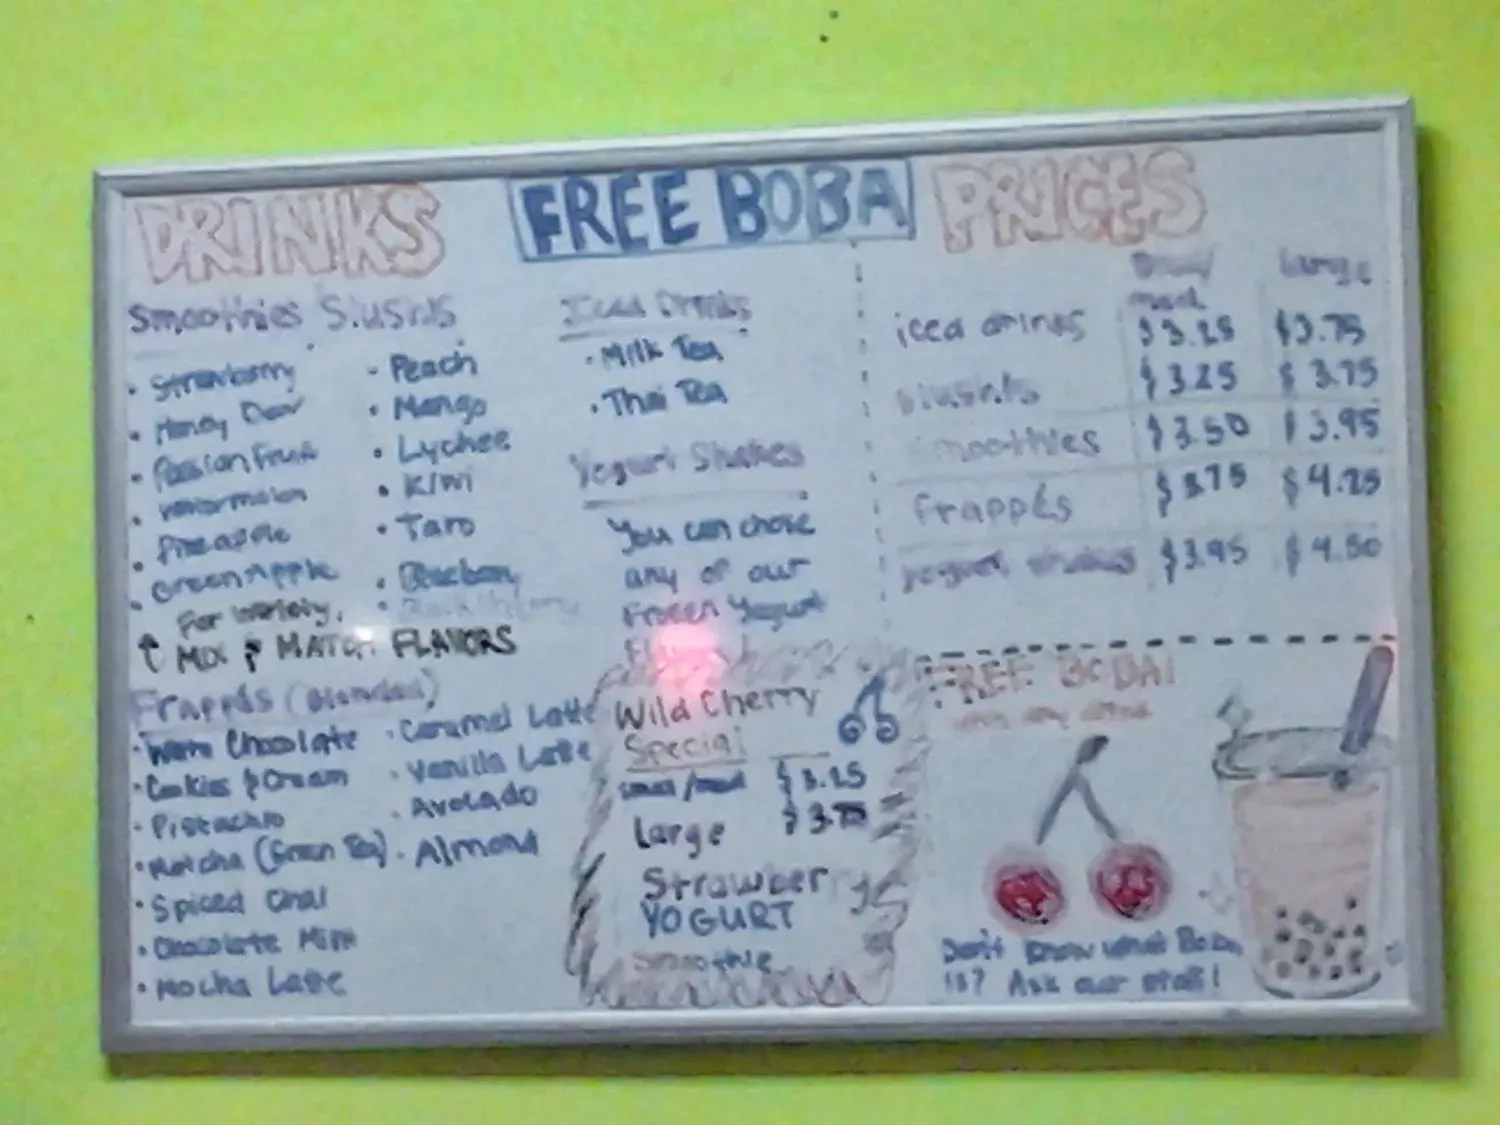 DRINKS
FREE BOBA
PRICES
Smoothies Slushis
• Strawberry
• Honey Dew
• Passion Fruit
• Watermelon
• Pineapple
• Green Apple
• Peach
• Mango
• Lychee
• Kiwi
• Taro
For variety,
↑ MIX & MATCH FLAVORS
Frappés (Blended)
• Cookies & Cream
• Pistachio
• Matcha (Green Tea)
• Spiced Chai
• Chocolate Mint
• Mocha Latte
• Caramel Latte
• Vanilla Latte
• Avocado
• Almond
Iced Drinks
• Milk Tea
• Thai Tea
Yogurt Shakes
You can chose
any of our
Frozen Yogurt
Wild Cherry
Special
small/med $3.25
Large $3.75
Strawberry
YOGURT
Smoothie
Small/ Large
med
iced drinks $3.25 $3.75
slushis $3.25 $3.75
Smoothies $3.50 $3.95
frappés $3.75 $4.25
yogurt shakes $3.95 $4.50
FREE BOBA!
with any drink
Don't know what Boba
is? Ask our staff!